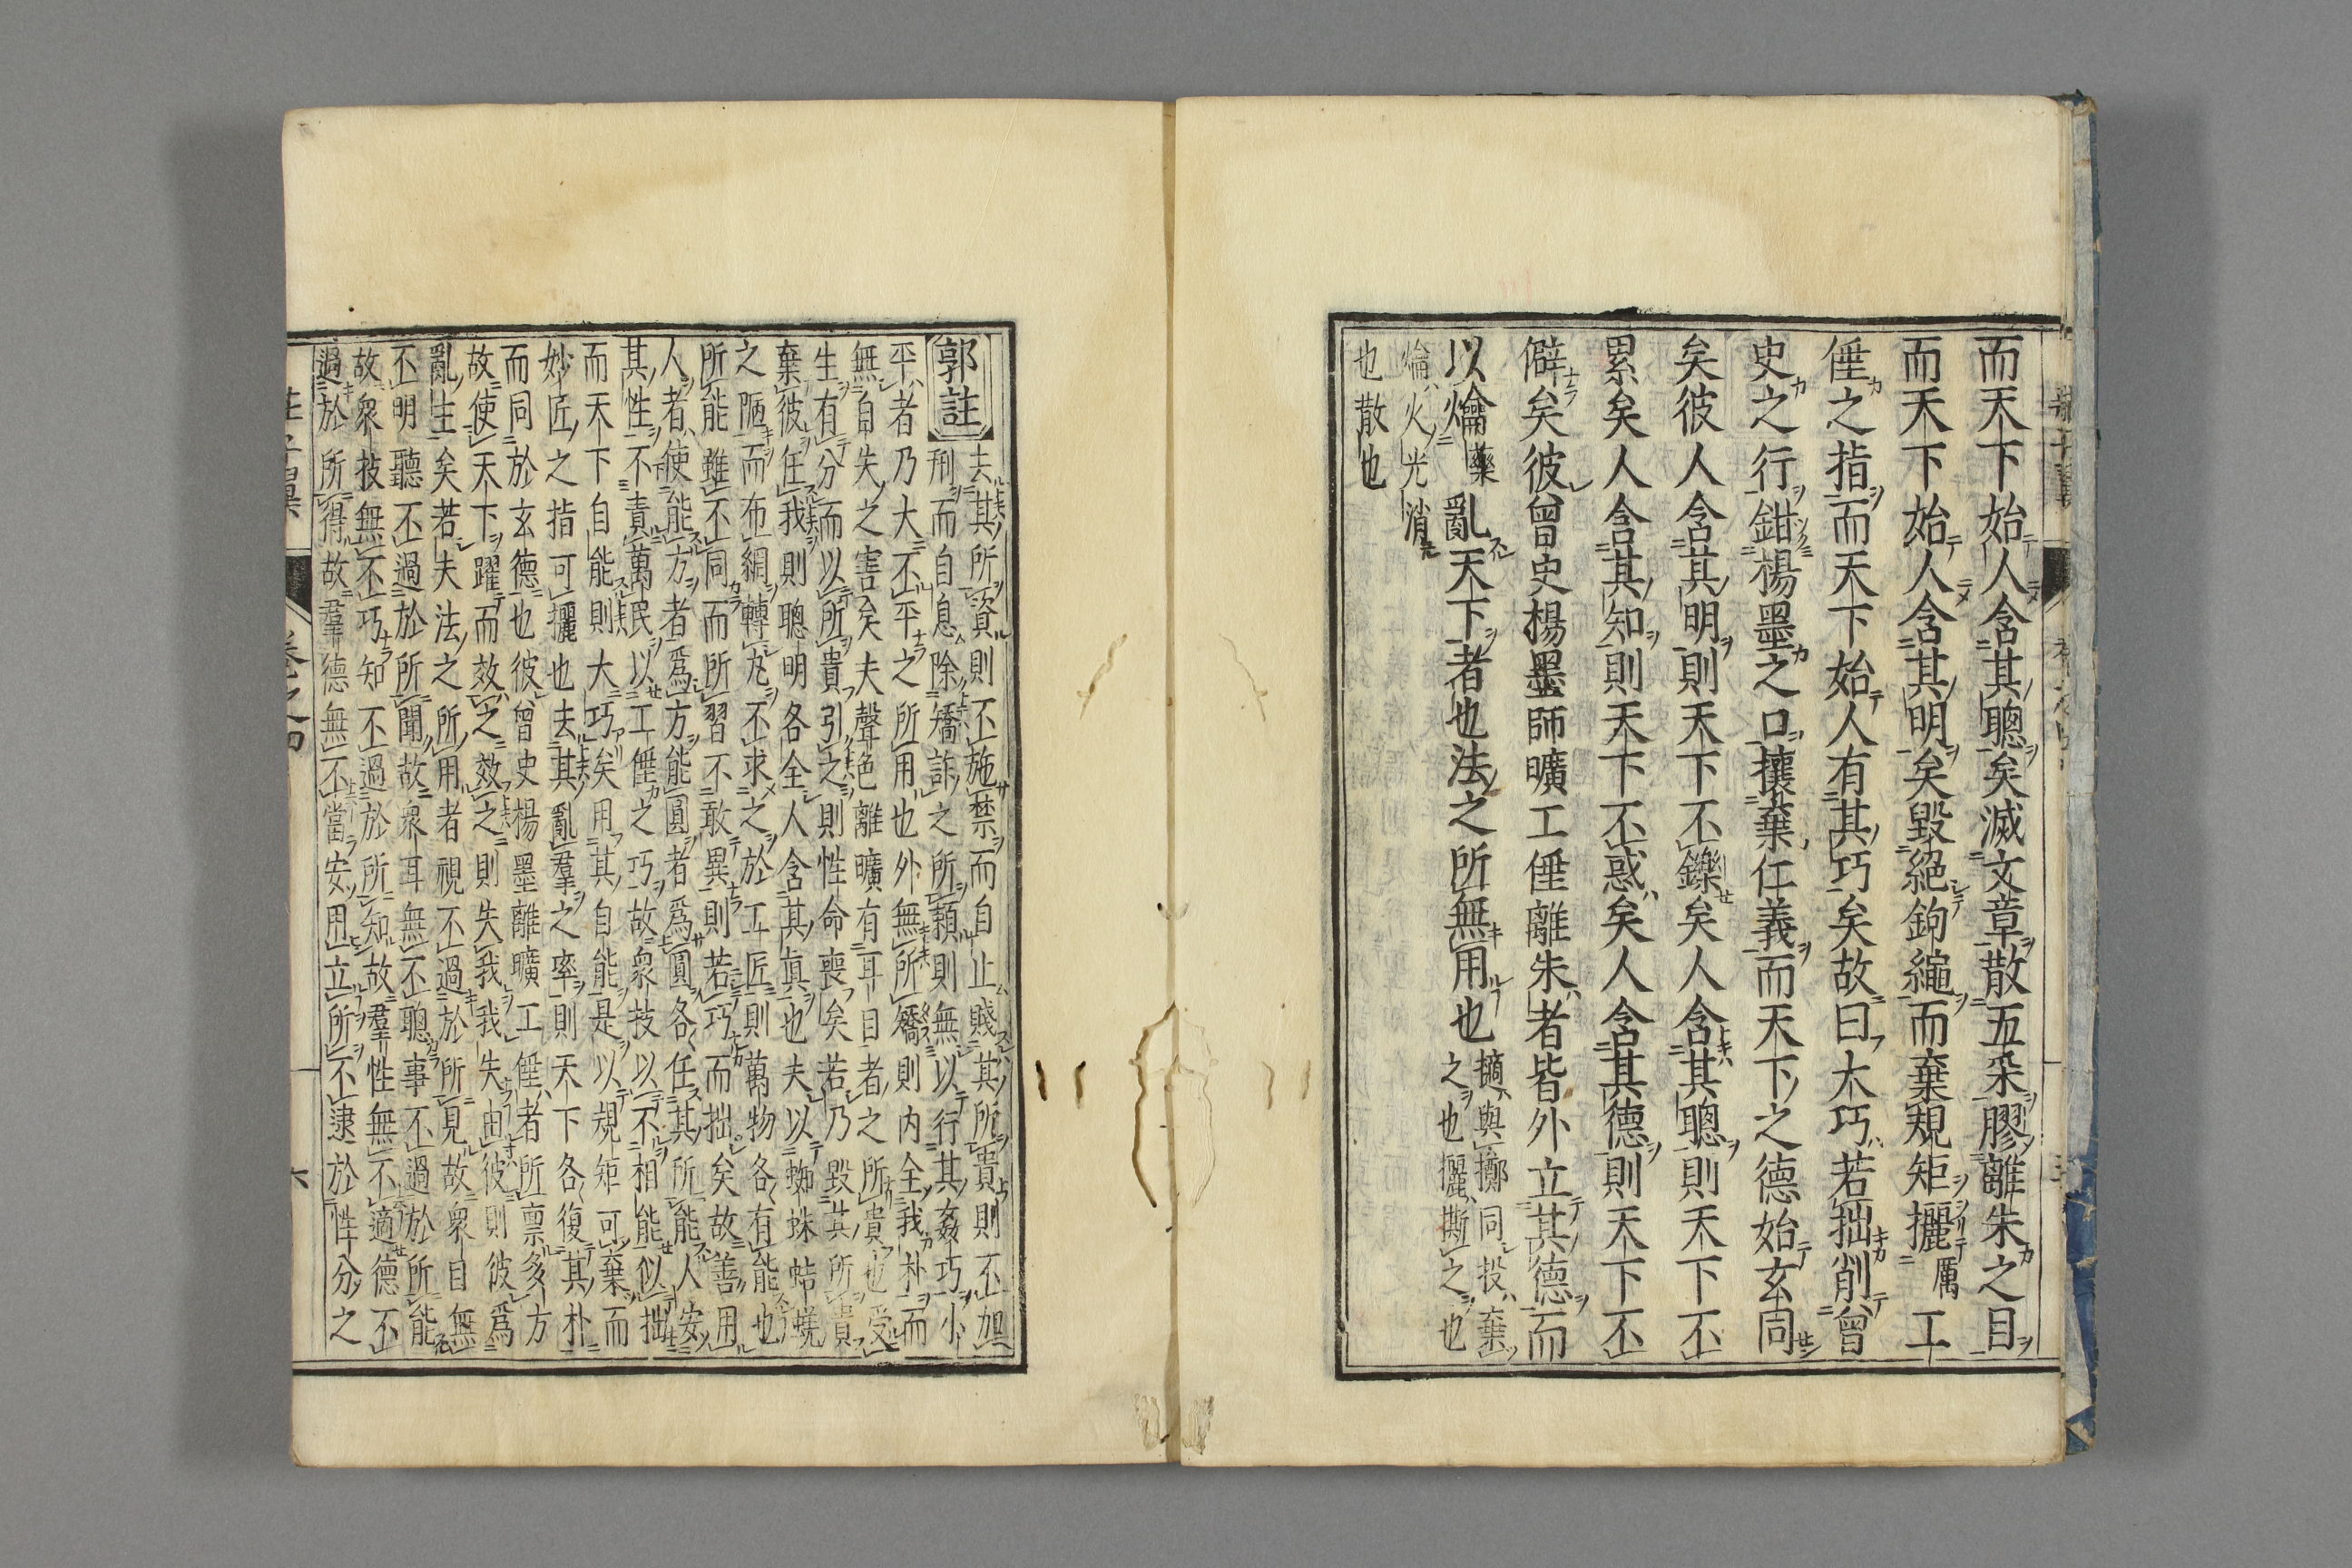 而天下始人含其聰矣滅文章散五采膠離朱之目
而天下始人含其明矣毀絕鉤繩而棄規矩攦厲工
倕之指而天下始人有其巧矣故曰大巧若拙削曾
史之行鉗楊墨之口攘棄仁義而天下之德始玄同
矣彼人含其明則天下不鑠矣人含其聰則天下不
累矣人含其知則天下不惑矣人含其德則天下不
僻矣彼曾史楊墨師曠工倕離朱者皆外立其德而
以爚藥亂天下者也法之所無用也擿與擲同投棄
之也攦撕之也
爚火光消
也散也
郭註去其所資則不施禁而自止賤其所貴則不加
刑而自息除矯詐之所賴則無以行其姦巧小
平者乃大不平之所用也外無所矯則内全我朴而
無自失之害矣夫聲色離曠有耳目者之所貴也受
生有分而以所貴引之則性命喪矣若乃毀其所貴
棄彼任我則聰明各全人含其眞也夫以蜘蛛蛣蜣
之陋而布網轉丸不求之於工匠則萬物各有能也
所能雖不同而所習不敢異則若巧而拙矣故善用
人者使能方者爲方能圓者爲圓各任其所能人安
其性不責萬民以工倕之巧故衆技以不相能似拙
而天下自能則大巧矣用其自能是以規矩可棄而
妙匠之指可攦也去其亂羣之率則天下各復其朴
而同於玄德也彼曾史楊墨離曠工倕者所禀多方
故使天下躍而效之效之則失我我失由彼則彼爲
亂主矣若夫法之所用者視不過於所見故衆目無
不明聽不過於所聞故衆耳無不聰事不過於所能
故衆技無不巧知不過於所知故羣性無不適德不
過於所得故羣德無不當安用立所不逮於性分之
卷之四
六